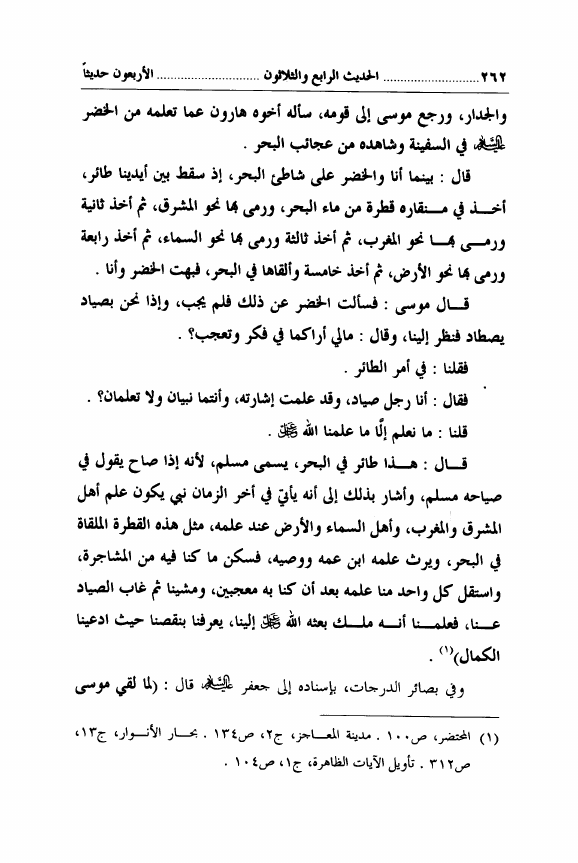 ٢٦٢ ............................ الحديث الرابع والثلاثون ............................ الأربعون حديثاً
والجدار، ورجع موسى إلى قومه، سأله أخوه هارون عما تعلمه من الخضر
عليه السلام في السفينة وشاهده من عجائب البحر .
قال : بينما أنا والخضر على شاطئ البحر، إذ سقط بين أيدينا طائر،
أخـــذ في مـــنقاره قطرة من ماء البحر، ورمى بها نحو المشرق، ثم أخذ ثانية
ورمـــى بهـــا نحو المغرب، ثم أخذ ثالثة ورمى بها نحو السماء، ثم أخذ رابعة
ورمى بها نحو الأرض، ثم أخذ خامسة وألقاها في البحر، فبهت الخضر وأنا .
قـــال موسى : فسألت الخضر عن ذلك فلم يجب، وإذا نحن بصياد
يصطاد فنظر إلينا، وقال : مالي أراكما في فكر وتعجب؟ .
فقلنا : في أمر الطائر .
فقال : أنا رجل صياد، وقد علمت إشارته، وأنتما نبيان ولا تعلمان؟ .
قلنا : ما نعلم إلَّا ما علمنا الله عز وجل .
قـــال : هـــذا طائر في البحر، يسمى مسلم، لأنه إذا صاح يقول في
صياحه مسلم، وأشار بذلك إلى أنه يأتي في أخر الزمان نبي يكون علم أهل
المشرق والمغرب، وأهل السماء والأرض عند علمه، مثل هذه القطرة الملقاة
في البحر، ويرث علمه ابن عمه ووصيه، فسكن ما كنا فيه من المشاجرة،
واستقل كل واحد منا علمه بعد أن كنا به معجبين، ومشينا ثم غاب الصياد
عـــنا، فعلمـــنا أنـــه ملـــك بعثه الله عز وجل إلينا، يعرفنا بنقصنا حيث ادعينا
الكمال)(١) .
وفي بصائر الدرجات، بإسناده إلى جعفر عليه السلام قال : (لما لقي موسى
(١) المحتضر، ص١٠٠ . مدينة المعـــاجز، ج٢، ص١٣٤ . بحـــار الأنـــوار، ج١٣،
ص٣١٢ . تأويل الآيات الظاهرة، ج١، ص١٠٤ .